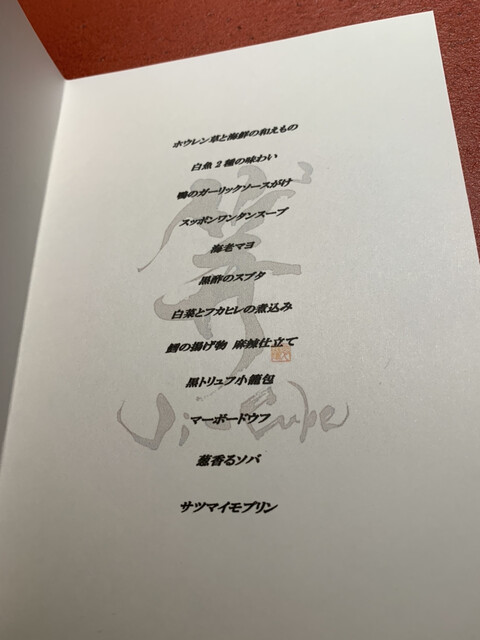 ホウレン草と海鮮の和えもの
白魚 2 種の味わい
鴨のガーリックソースがけ
スッポンワンタンスープ
海老マヨ
黒酢のスブタ
白菜とフカヒレの煮込み
鱈の揚げ物 麻辣仕立て
黒トリュフ小籠包
マーボードウフ
葱香るソバ
サツマイモプリン